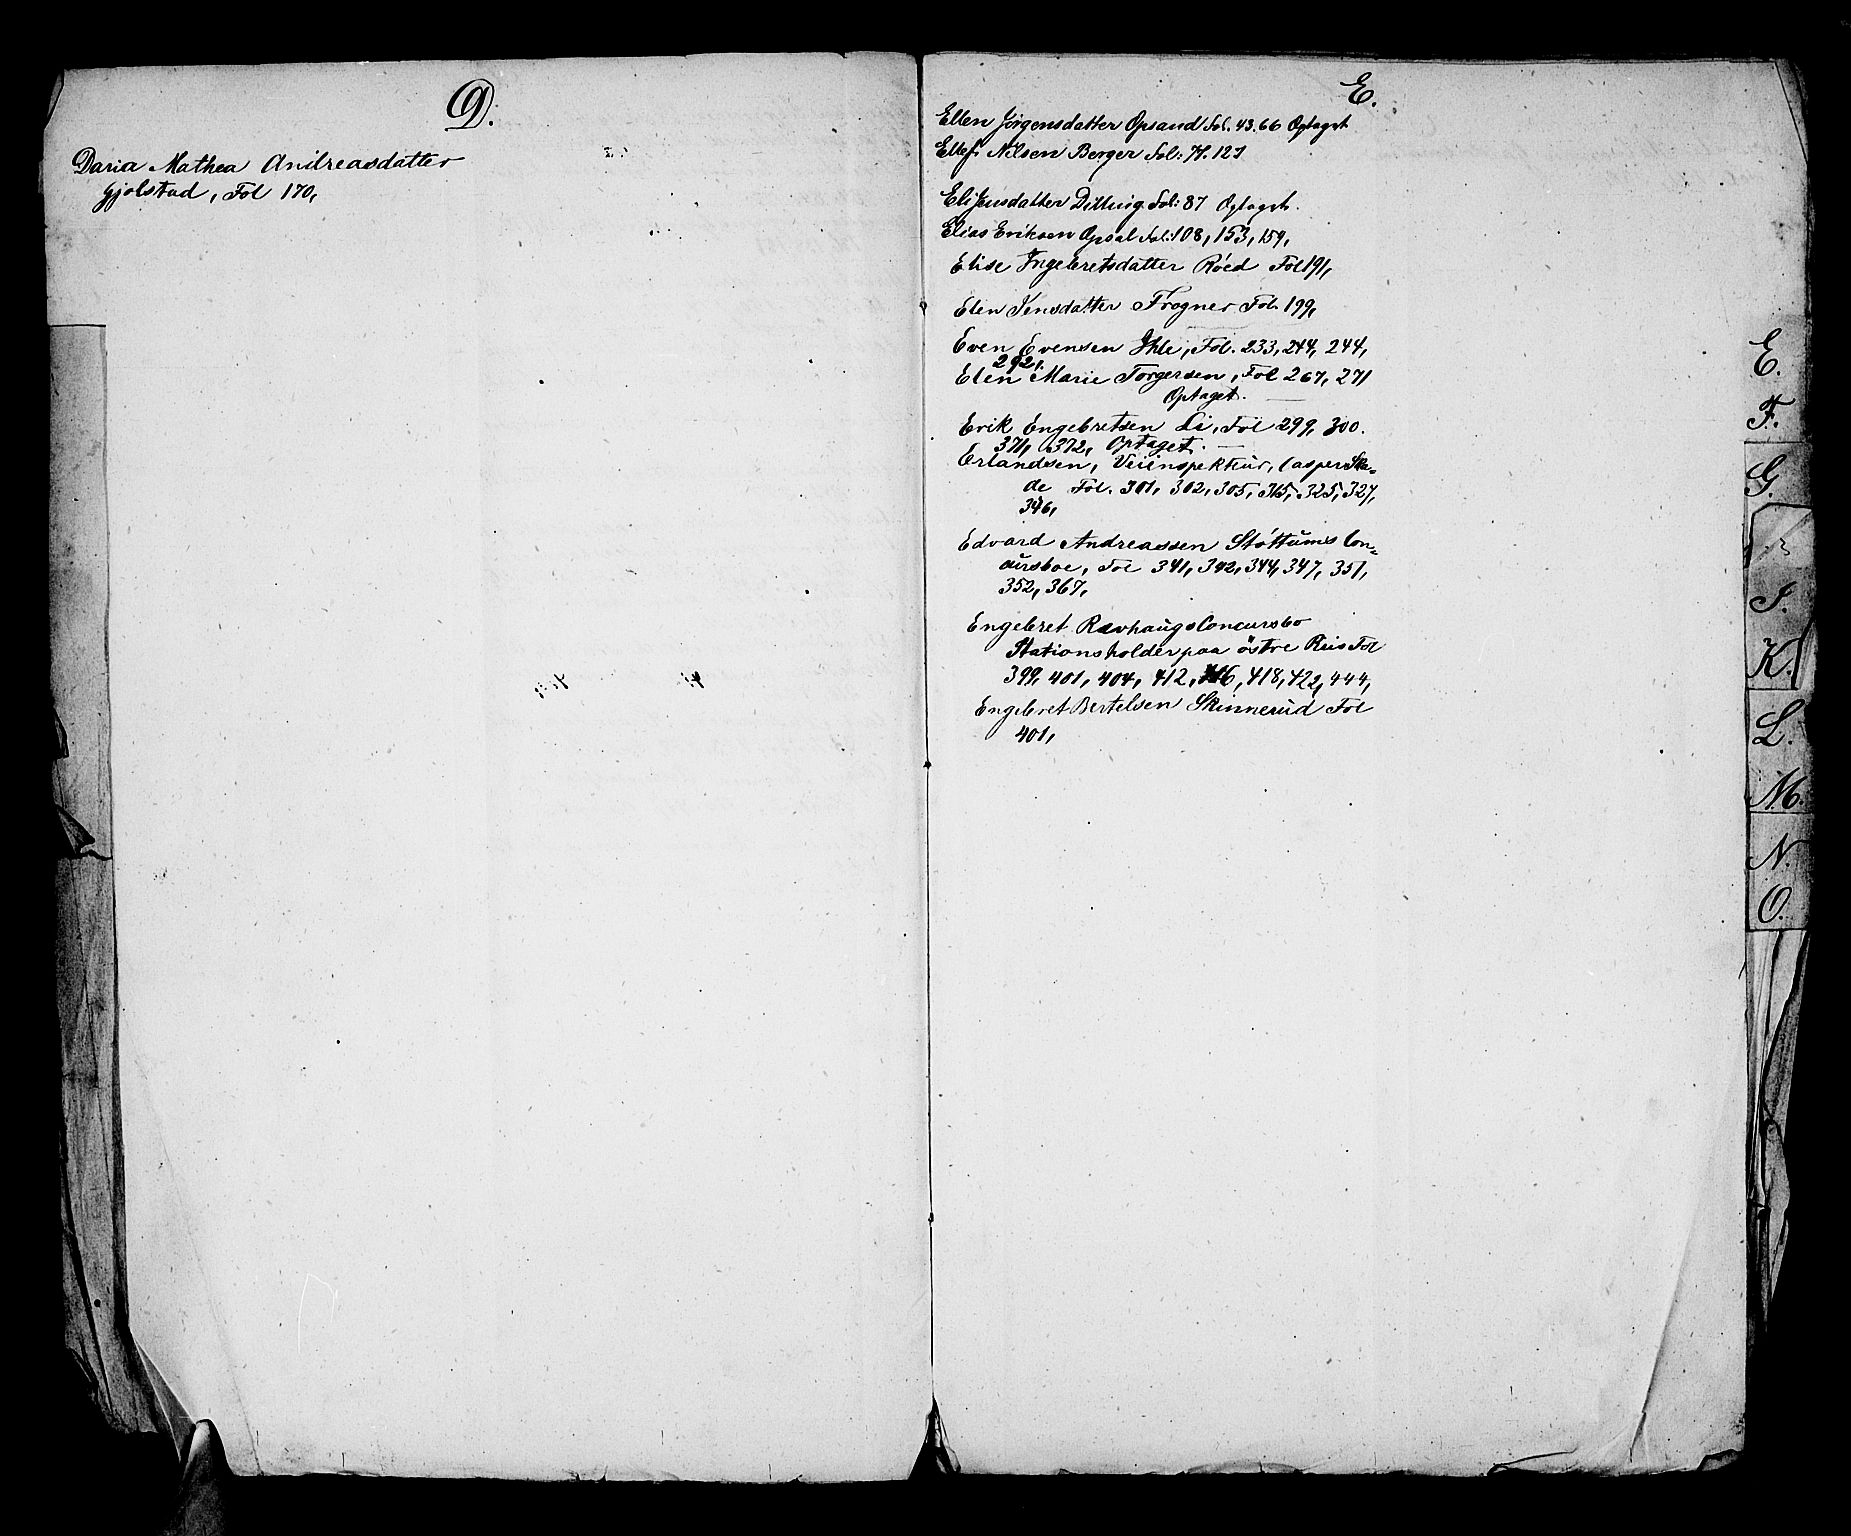 D.
Daria Mathea Andreasdatter
Gjolstad, Fol 170,
E.
Ellen Jörgensdatter Opsand Fol. 43.66 Optaget
Ellef Nilsen Berger Fol: 71.127
Eli Jensdatter Fol: 87 Optaget.
Elias Eriksen Opsal Fol: 108, 153, 159,
Elise Ingebretsdatter Röed Fol 191,
Elen Jensdatter Frogner Fol. 199,
Even Evensen Ihle, Fol. 233, 244, 244,
292,
Elen Marie Torgersen, Fol 267, 271
Optaget.
Erik Engebretsen Li, Fol 299, 300.
371, 372, Optaget.
Erlandsen, Veiinspekteur, Casper Ska-
de Fol. 301, 302, 305, 315, 325, 327,
346,
Edvard Andreassen Stöttums Con-
cursboe, Fol 341, 342, 344, 347, 351,
352, 367,
Engebret Ravhaugs Concursbo
Stationsholder paa östre Riis Fol
399, 401, 404, 412, 416, 418, 422, 444,
Engebret Bertelsen Skinnerud Fol
401,
E.
F.
G.
I.
K.
L.
M.
N.
O.